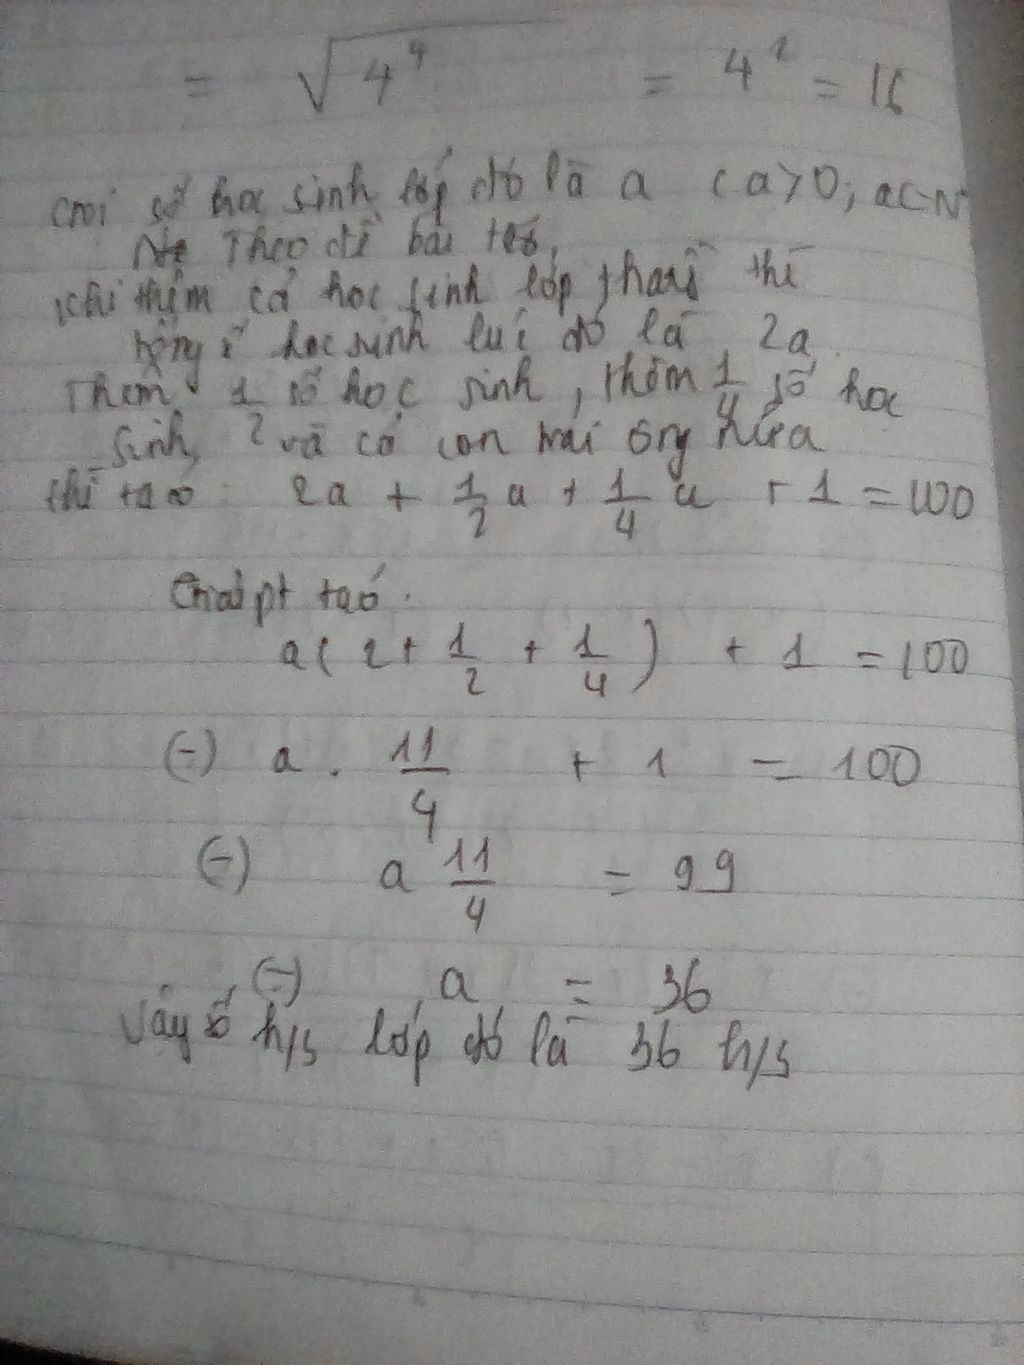 = √4⁴ = 4² = 16
Gọi số học sinh lớp đó là a (a>0; a∈N
Theo đề bài ta có,
khi thêm cả học sinh lớp thầy thì
học sinh lúc đó là 2a.
Thêm 1/2 số học sinh, thêm 1/4 số học
sinh, và có con trai ông nữa
thì ta có: 2a + 1/2 a + 1/4 a + 1 = 100
Giải pt ta có.
a(2 + 1/2 + 1/4) + 1 = 100
(=) a . 11/4 + 1 = 100
(=) a 11/4 = 99
(=) a = 36
Vậy số h/s lớp đó là 36 h/s